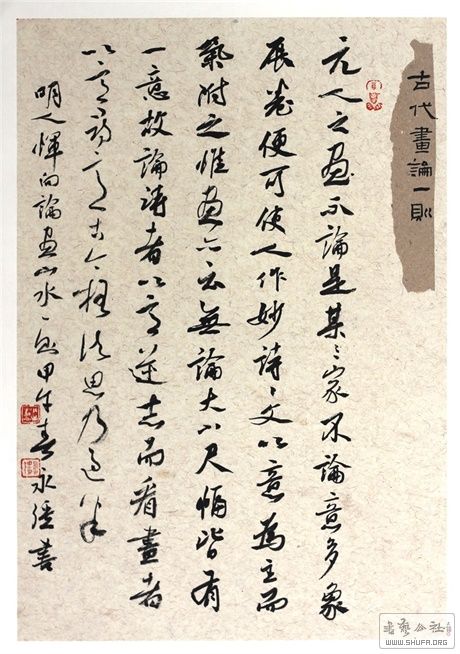 古代畫論一則
元人之画不論是某〻家不論意多象
展卷便可使人作妙詩〻文以意為主而
氣附之惟画亦云無論大小尺幅皆有
一意故論詩者以意逆志而看畫者
以意尋意古今格法思乃過半
明人惲向論画山水一則甲午春永書
書藝公社
WWW.SHUFA.ORG